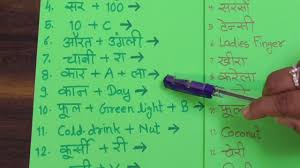 4. सर + 100 →
5. 10 + C →
6. औरत + उंगली →
7. चाबी + रा →
8. कार + A + ला →
9. कान + Day →
10. फूल + Green light + B →
11. Cold drink + Nut →
12. कुर्सी + री →
सरसों
टेन्सी
Ladies Finger
खीरा
करेला
Coconut